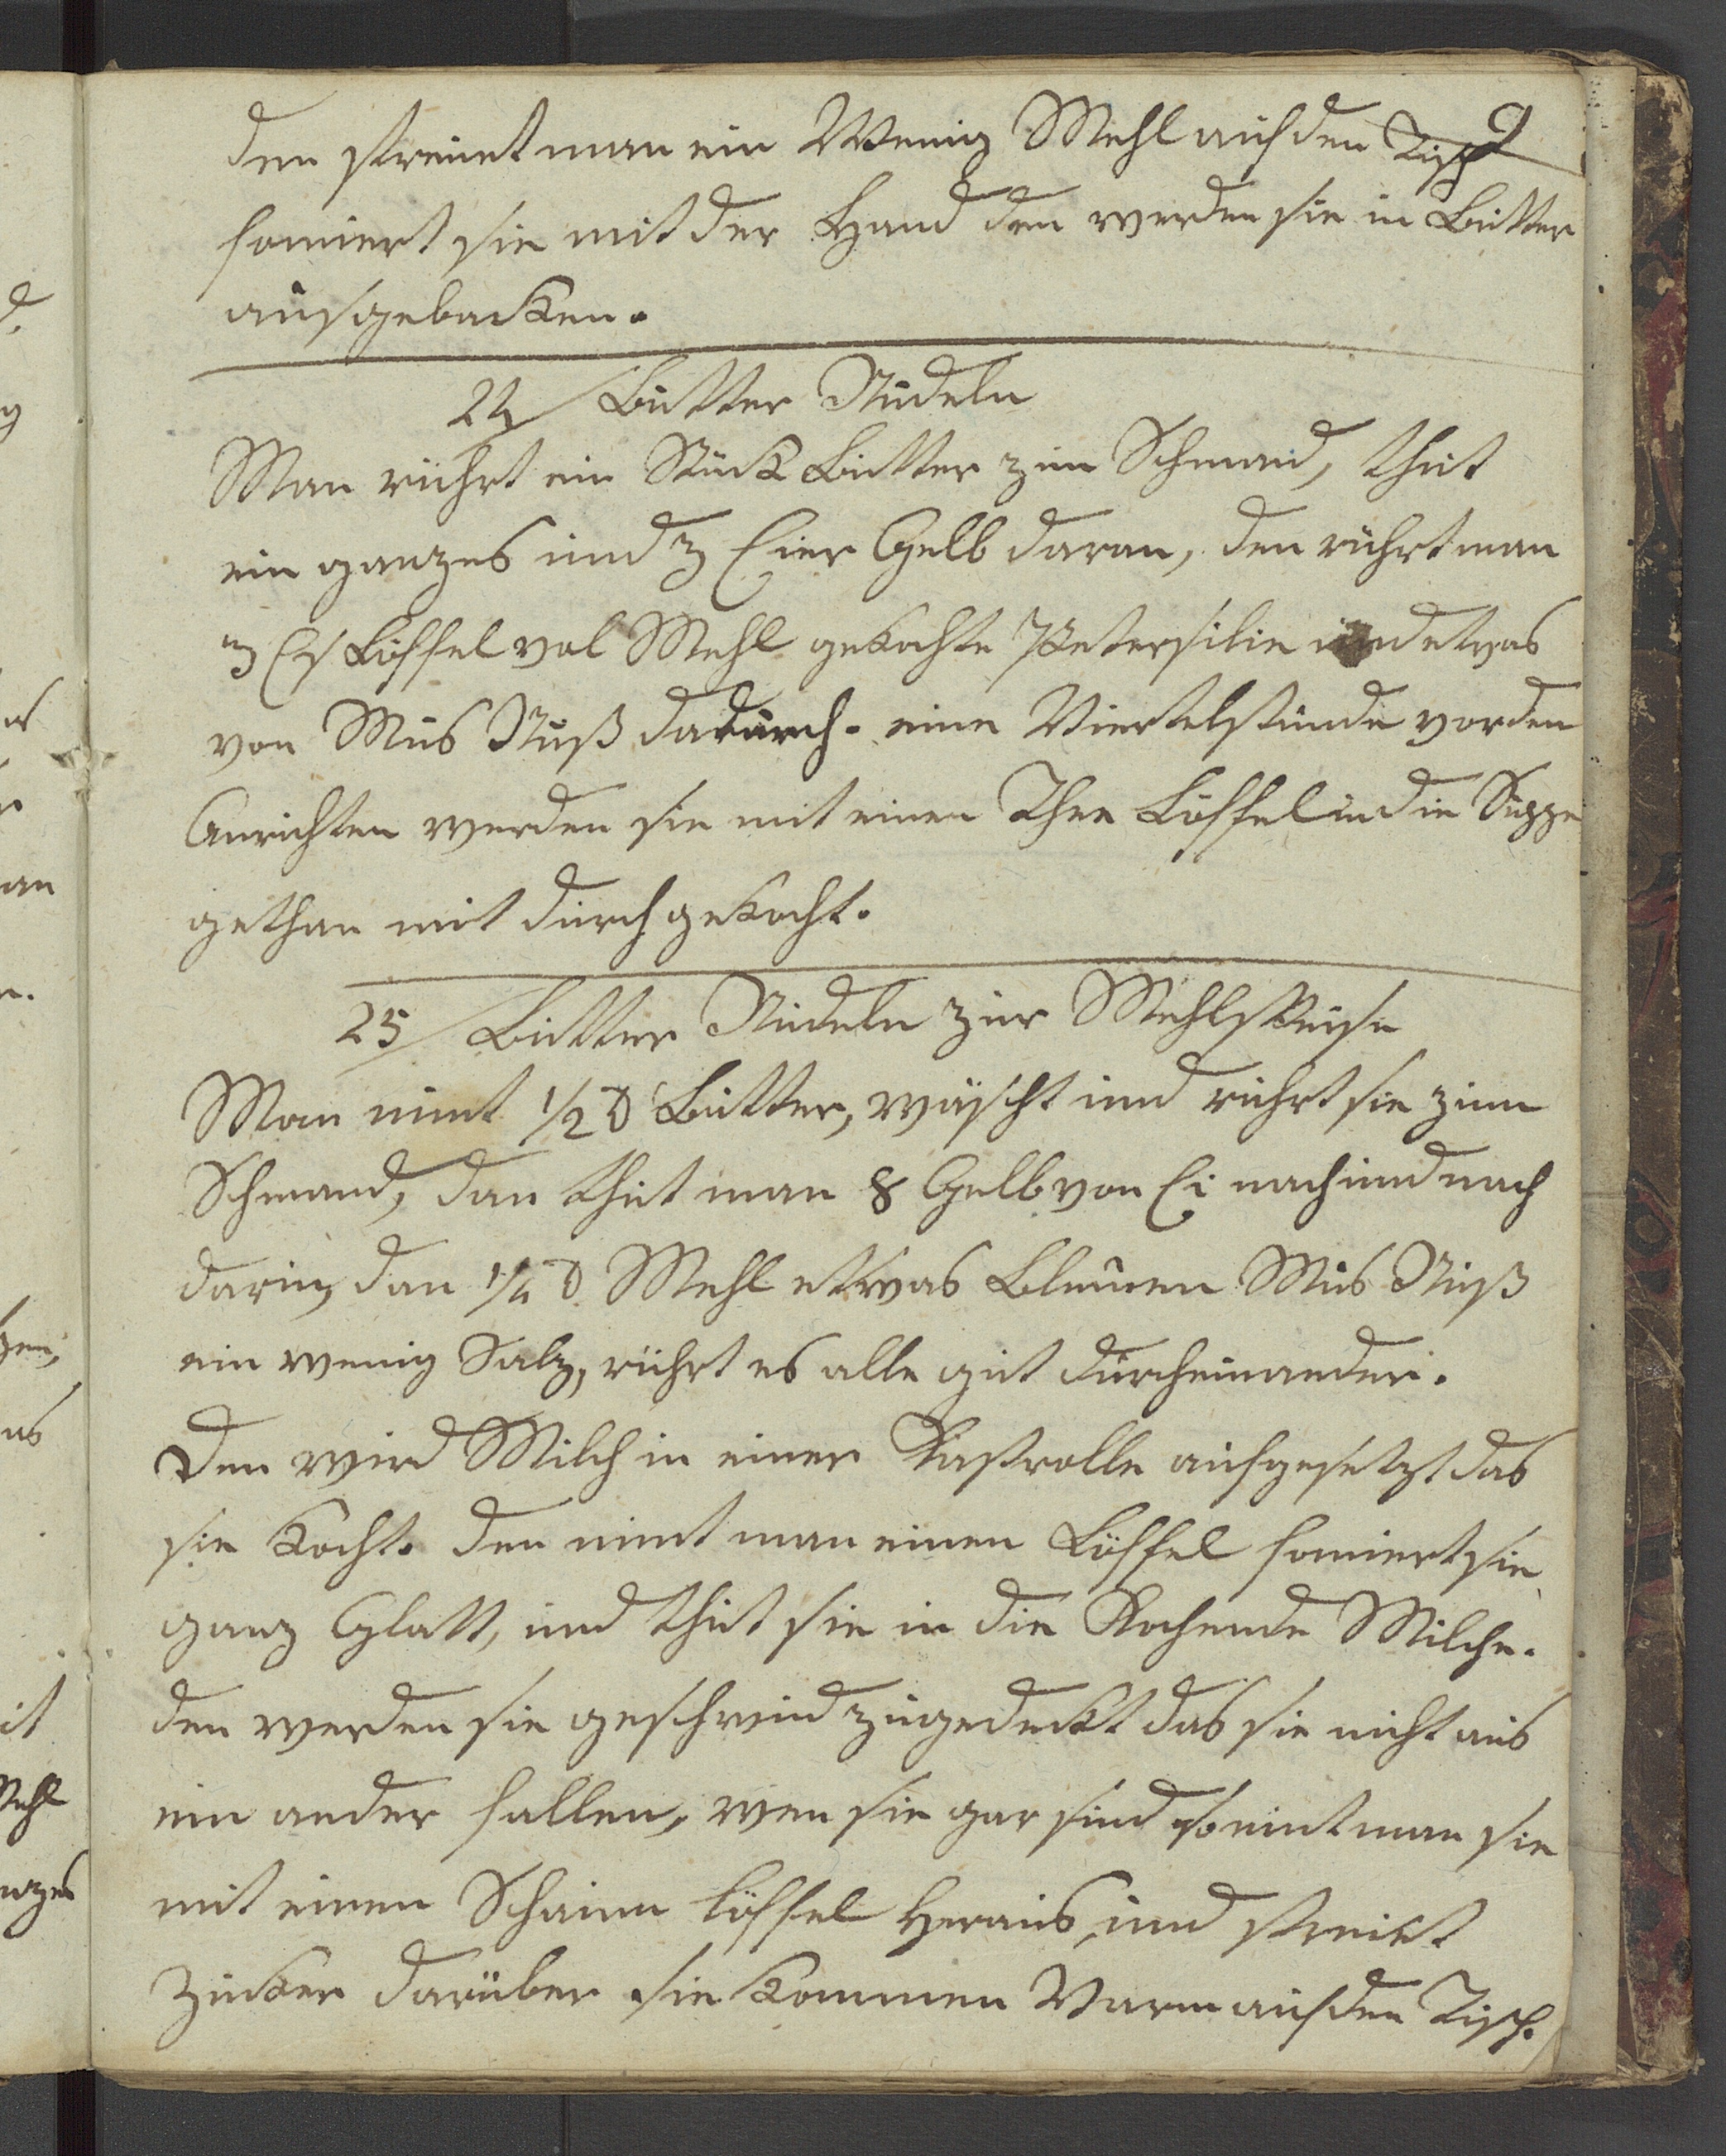 den streuet man ein Wenig Mehl auf den Tisch
fomiert sie mit der Hand den werden sie in Butter
ausgebacken.
24 Butter Nudeln
Man rührt ein Stück Butter zum Schmand, thut
ein ganzes und 3 Eier Gelb daran, den rührt man
3 Eß Löffel vol Mehl gekochte Petersilie und etwas
von Mus Nuß dadurch. eine Viertelstunde vor den
Anrichten werden sie mit einen Thee Löffel in die Suppe
gethan mit durch gekocht.
25 Butter Nudeln zur Mehlspeise
Man nimt 1/2 ℔ Butter, wäscht und rührt sie zum
Schmand, dan thut man 8 Gelb von Ei nach und nach
darin, dan 1/4 ℔ Mehl etwas Blumen Mus Nuß
ein wenig Salz, rührt es alle gut durcheinander.
Den wird Milch in einer Kastrolle aufgesetzt das
sie Kocht. den nimt man einen Löffel fomiert sie
ganz Glatt, und thut sie in die Kochende Milche.
den werden sie geschwind zugedeckt das sie nicht aus
ein ander fallen, wen sie gar sind so nimt man sie
mit einen Schaum löffel Heraus, und streut
Zucker darüber sie Kommen Warm auf den Tisch.